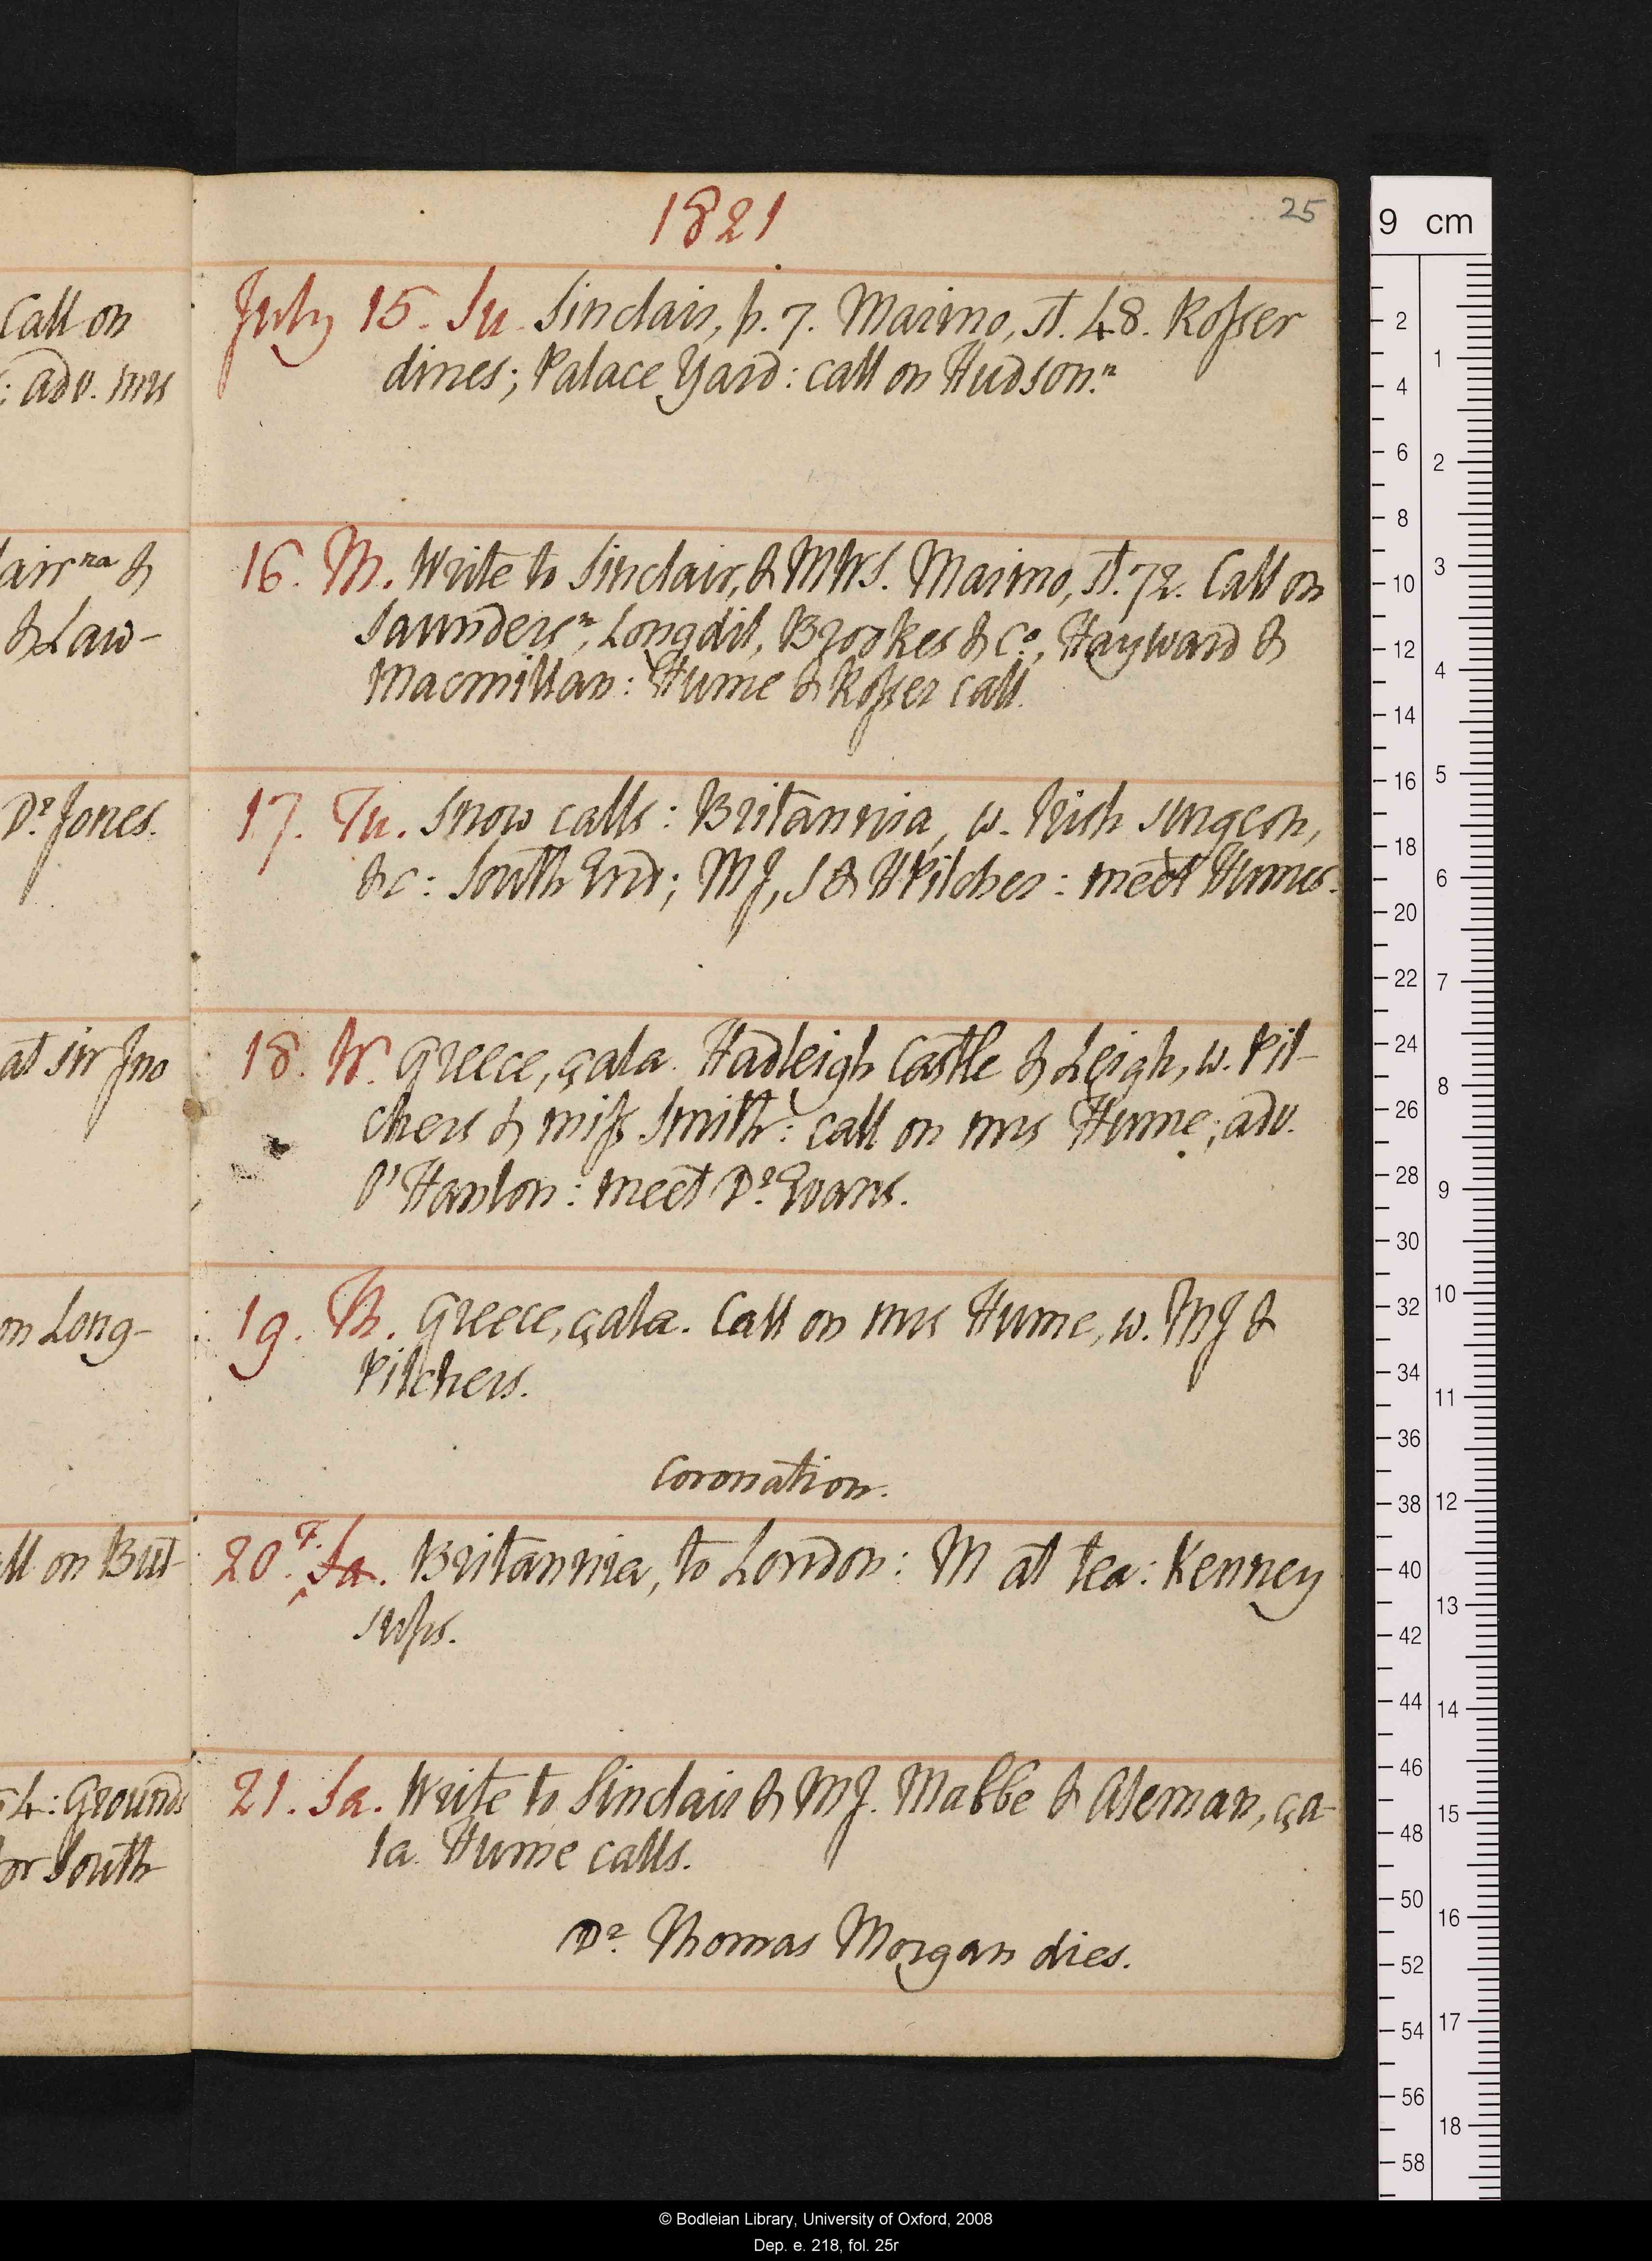 1821
25
July 15. Su. Sinclair, p. 7. Marino, st. 48. Rosser
dines; Palace Yard: call on Hudson.n
16. M. Write to Sinclair, & MWS. Marino, st. 72. Call on
Saundersn, Longdil, Brookes & Co, Hayward &
Macmillan: Hume & Rosser call.
17. Tu. Snow calls: Britannia, w. Irish surgeon,
&c: South End; MJ, S & H Pilcher: meet Humes.
18. W. Greece, çala. Hadleigh Castle & Leigh, w. Pil-
chers & miss Smith: call on mrs Hume; adv.
O'Hanlon: meet Dr. Evans.
19. Th. Greece, çala. Call on mrs Hume, w. MJ &
Pilchers.
Coronation.
20. F. Sa. Britannia, to London: M at tea: Kenney
sups.
21. Sa. Write to Sinclair & MJ. Mabbe & Aleman, ça-
la. Hume calls.
Dr. Thomas Morgan dies.
Call on
: adv. mrs
& Law-
Dr. Jones.
at sir Jno
on Long-
ll on But-
4: Grounds
or South
9 cm
2
4
6
8
10
12
14
16
18
20
22
24
26
28
30
32
34
36
38
40
42
44
46
48
50
52
54
56
58
1
2
3
4
5
6
7
8
9
10
11
12
13
14
15
16
17
18
© Bodleian Library, University of Oxford, 2008
Dep. e. 218, fol. 25r